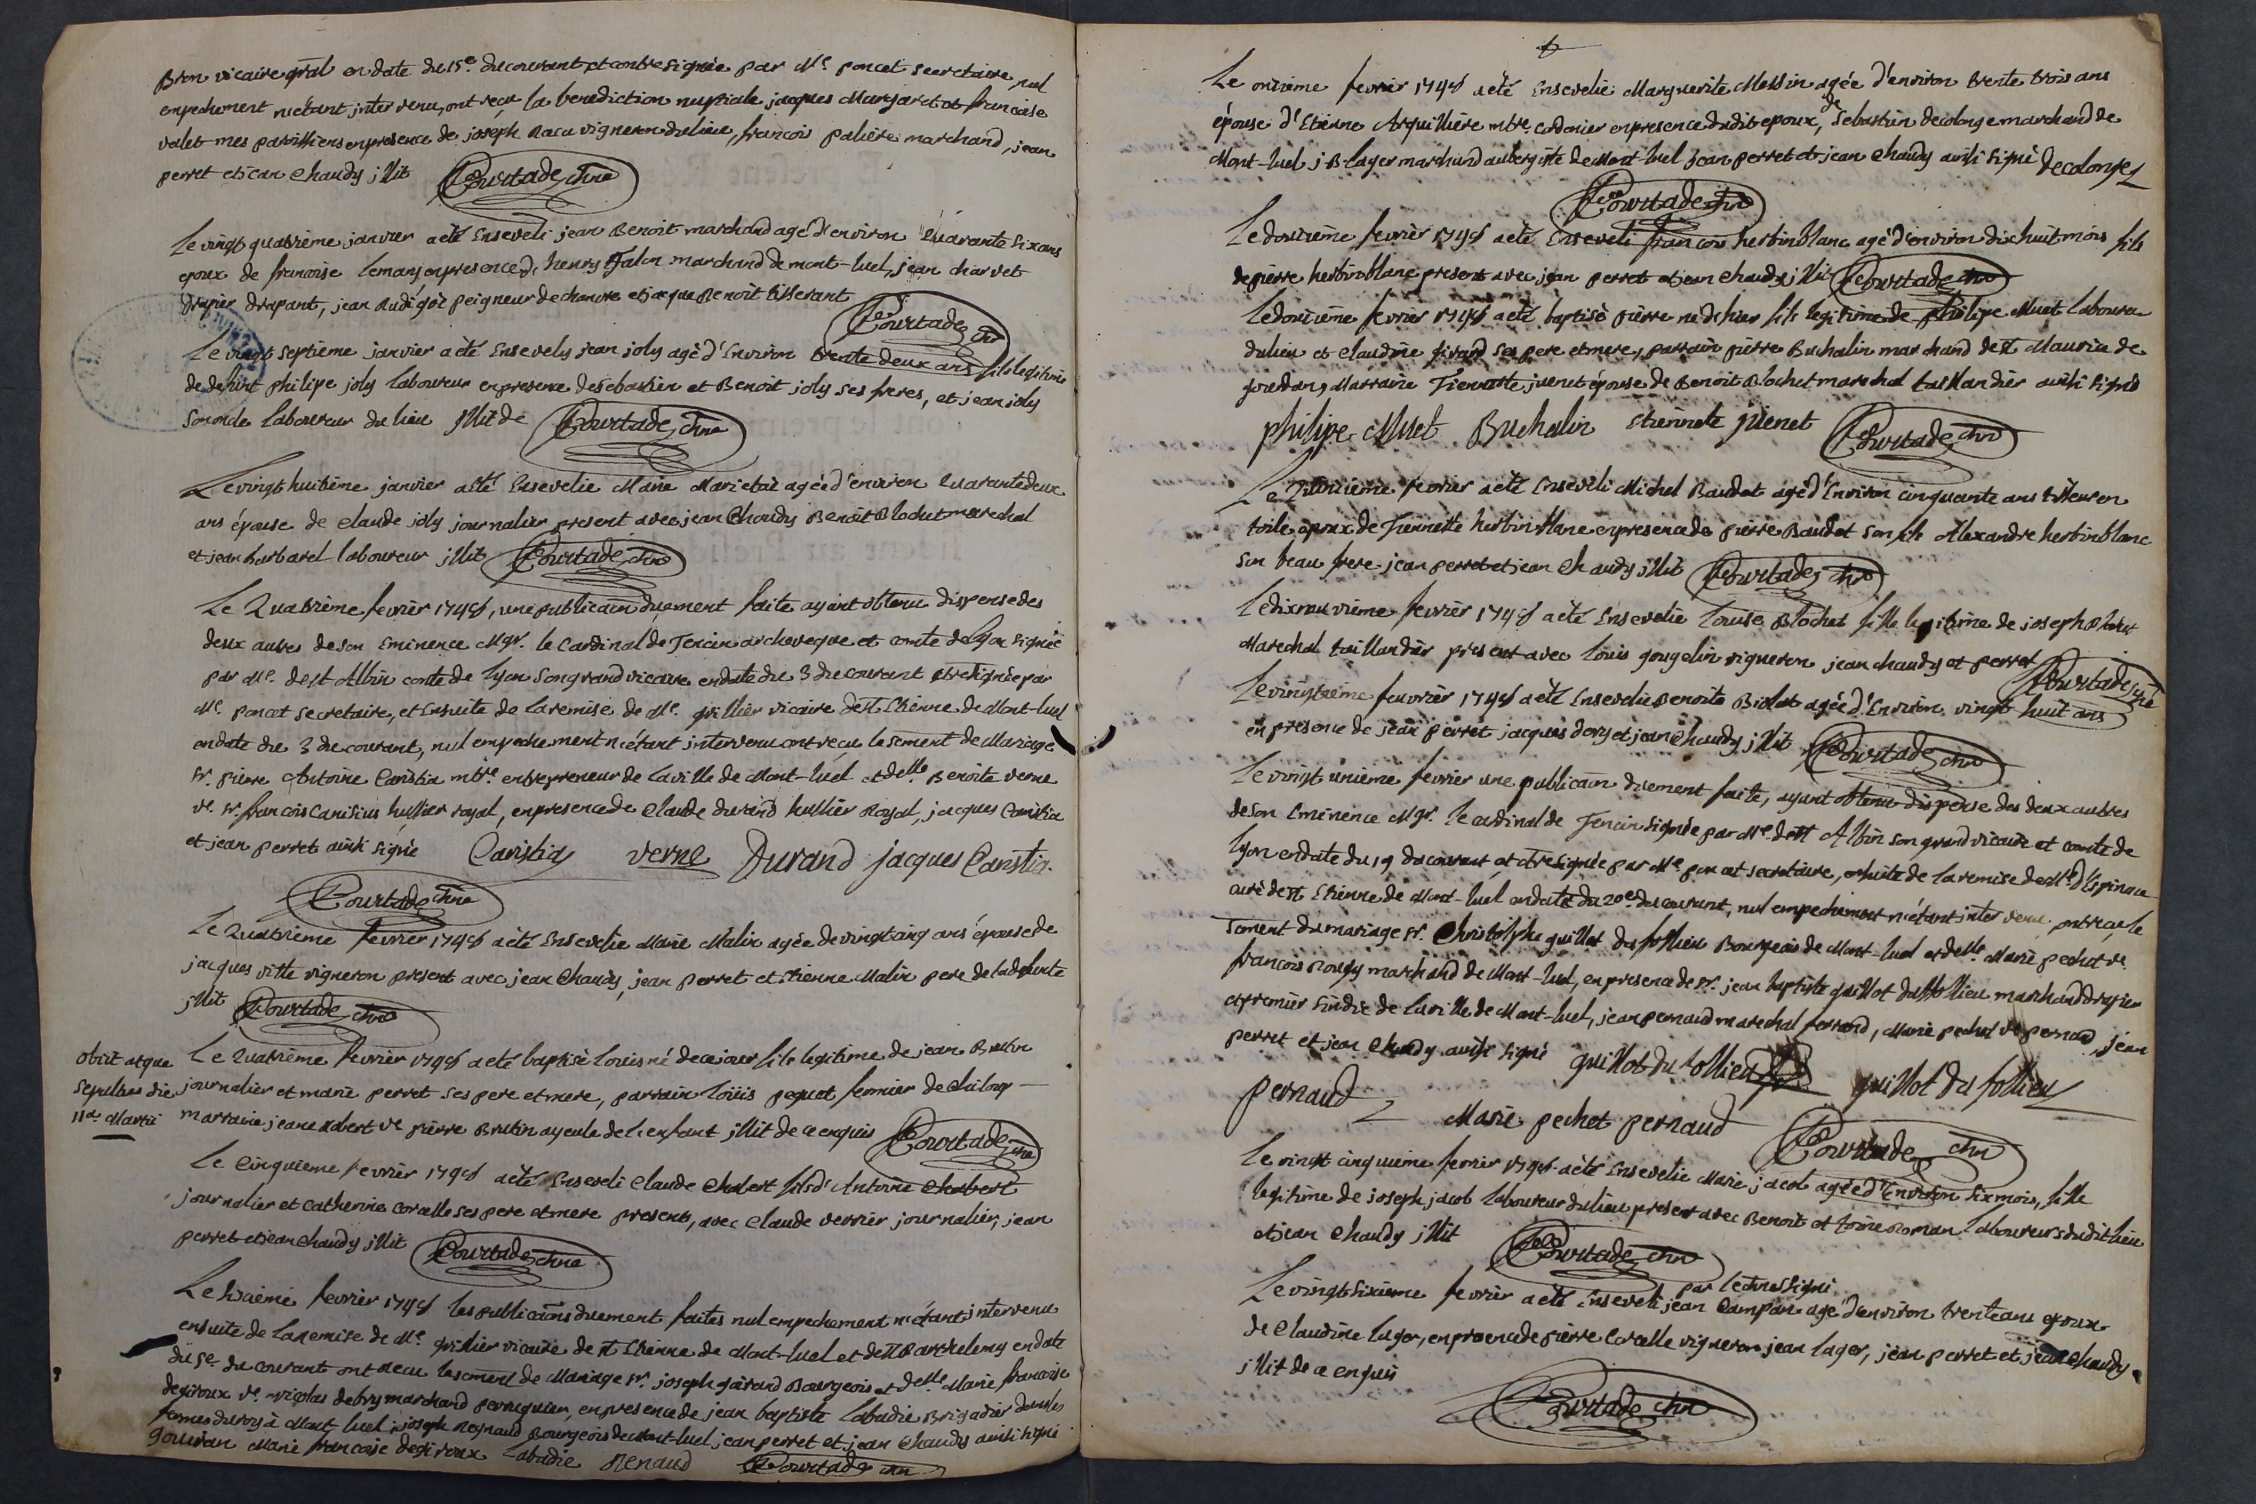 Bron vicaire gñal en date du 15e. du courant et contresignée par Mr. poncet secretaire, nul
empechement n'etant intervenu, ont reçu la benediction nuptiale jacques Manjard et francoise
valet mes paroissiens en presence de joseph Racu vigneron du lieu, francois paliere marchand, jean
perret et jean chaudy illit Courtade chne
Le vingt quatrième janvier a eté Enseveli jean Benoit marchand agé d'environ quarante six ans
epoux de francoise Lemany en presence de henry Falcon marchand de mont-luel, jean charvet
drapier drapant, jean Rudigoz peigneur de chanvre et jacque Benoit tisserant Courtade chne
Le vingt septième janvier a eté Ensevely jean joly agé d'Environ trente deux ans fils legitime
de defunt philipe joly laboureur en presence de Sebastien et Benoit joly ses freres, et jean joly
son oncle laboureur du lieu illit de Courtade chne
Le vingt huitième janvier a eté Ensevelie Marie Marietaz agée d'environ quarante deux
ans épouse de claude joly journalier present avec jean chaudy Benoit Blochet marechal
et jean Barbarel laboureur illit Courtade chne
Le Quatrième fevrier 1748, une publicaõn duement faite ayant obtenu dispense des
deux autres de son Eminence Mgr. le Cardinal de Tencin archeveque et comte de Lyon signée
par Mr. de st Albin conte de lyon son grand vicaire en date du 3 du courant ctresignée par
Mr. poncet secretaire, et Ensuite de la remise de Mr. grillier vicaire de st Etienne de Mont-luel
en date du 3 du courant, nul empechement n'etant intervenu ont reçu le sement de Mariage
sr. pierre Antoine Caristia mtre. entrepreneur de la ville de Mont-luel et delle Benoite verne
ve. sr. francois Canisius hussier royal, en presence de claude durand hussier Royal, jacques Caristia
et jean perret ainsi signé Caristia verne Durand jacques Caristia
Courtade chne
Le Quatrième fevrier 1748 a eté Ensevelie Marie Malin agée de vingt cinq ans épouse de
jacques vitte vigneron present avec jean chaudy, jean perret et Etienne Malin pere de la defunte
illit Courtade chne
obiit atque
sepultus die
11a Martii
Le Quatrième fevrier 1748 a eté baptisé Louis né de ce jour fils legitime de jean Brutin
journalier et marie perret ses pere et mere, parrain loüis pequet fermier de chiloup
marraine jeane Robert ve pierre Brutin ayeule de l'enfant illit de ce enquis Courtade chne
Le Cinquième fevrier 1748 a eté Enseveli claude chabert fils d'Antoine chabert
journalier et catherine corcelle ses pere et mere presents, avec claude verrier journalier, jean
perret et jean chaudy illit Courtade chne
Le Sixième fevrier 1748 les publicaõns duement faites nul empechement n'etant intervenu
ensuite de la remise de Mr. grillier vicaire de st Etienne de Mont-luel et de st Barthelemy en date
du 5e. du courant ont recu le sement de Mariage sr. joseph gérand Bourgeois et delle Marie francoise
degiroux ve. nicolas debry marchand perruquier, en presence de jean baptiste Labadie Brigadier dans les
fermes du roy à Mont luel, joseph Reynaud Bourgeois de Mont-luel jean perret et jean chaudy ainsi signé
Marie francoise degiroux Labadie Renaud Courtade chne
Le onzieme fevrier 1748 a eté Ensevelie Marguerite Messin agée d'environ trente trois ans
épouse d'Etienne Arquilliére mtre. cordonier en presence dudit epoux, de Sebastien decolonge marchand de
Mont-luel j B lager marchand aubergiste de Mont-luel jean perret et jean chaudy ainsi signé Decolonge
Courtade chne
Le douzieme fevrier 1748 a eté Enseveli francois herbinblanc agé d'environ dix huit mois fils
de pierre herbinblanc present avec jean perret et jean chaudy illit Courtade chne
Le douzieme fevrier 1748 a eté baptisé pierre né d'hier fils legitime de philipe Muet laboureur
du lieu et claudine girand ses pere et mere, parrain pierre Buchalin marchand de st Maurice de
gourdans, Marraine Tiennette juenet épouse de Benoit Blochet marechal taillandier ainsi signé
philipe Muet Buchalin etiennete juenet Courtade chne
Le Quinzieme fevrier a eté Enseveli Michel Baudet agé d'Environ cinquante ans tisseur en
toile, epoux de Tiennette herbinblanc en presence de pierre Baudet son fils Alexandre herbinblanc
son beau frere jean perret et jean chaudy illit Courtade chne
Le dix neuvieme fevrier 1748 a eté Ensevelie Louise Blochet fille legitime de joseph Blochet
Marechal taillandier present avec Louis gougelin vigneron jean chaudy et perret Courtade chne
Le vingtieme feuvrier 1748 a eté Ensevelie Benoite Biolet agée d'Environ vingt huit ans
en presence de jean perret jacques dory et jean chaudy illit Courtade chne
Le vingt unieme fevrier une publicaõn duement faite, ayant obtenu dispense des deux autres
de son Eminence Mgr. le cardinal de Tencin signée par Mr. de st Albin son grand vicaire et comte de
Lyon en date du 19 du courant et ctresignée par Mr. poncet secretaire, ensuite de la remise de Mr. d'Espinace
curé de st Etienne de Mont-luel en date du 20e. du courant, nul empechement n'etant intervenu, ont reçu le
sement du mariage sr. christophe guillot du sollieu Bourgeois de Mont-luel et delle. Marie pechet ve.
francois Rougy marchand de Mont-luel, en presence de sr. jean baptiste guillot du sollieu marchand drapier
et premier sindic de la ville de Mont-luel, jean pernaud marechal ferrand, Marie pechet ve pernaud, jean
perret et jean chaudy ainsi signé guillot du sollieu guillot du sollieu
pernaud Marie pechet pernaud
Courtade chne
Le vingt cinquieme fevrier 1748 a eté Ensevelie Marie jacob agée d'Environ six mois, fille
legitime de joseph jacob laboureur du lieu present avec Benoit et Toine Roman laboureurs dudit lieu
et jean chaudy illit Courtade chne
par le chne signé
Le vingt sixieme fevrier a eté Enseveli jean Campan agé d'environ trente ans epoux
de claudine lager, en presence de pierre Corcelle vigneron jean lager, jean perret et jean chaudy
illit de ce enquis
Courtade chne